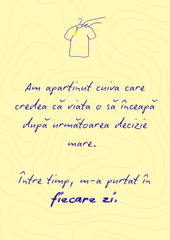 Am aparținut cuiva care
credea că viața o să înceapă
după următoarea decizie
mare.
Între timp, m-a purtat în
fiecare zi.